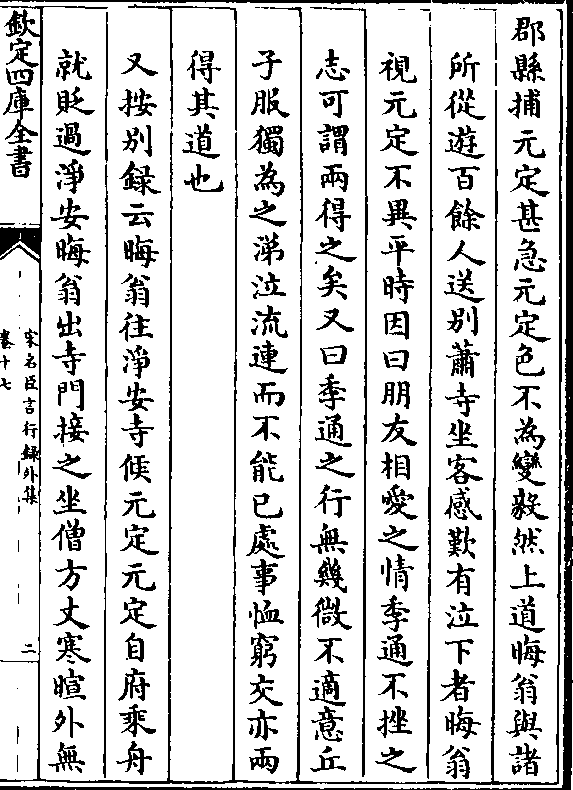 郡縣捕元定甚急元定色不為變毅然上道晦翁與諸
所從遊百餘人送別蕭寺坐客感歎有泣下者晦翁
視元定不異平時因曰朋友相愛之情季通不挫之
志可謂兩得之矣又曰季通之行無幾微不適意丘
子服獨為之涕泣流連而不能已處事恤窮交亦兩
得其道也
又按別録云晦翁往淨安寺候元定元定自府乘舟
就貶過淨安晦翁出寺門接之坐僧方丈寒暄外無
欽定四庫全書
宋名臣言行録外集
卷十七
二